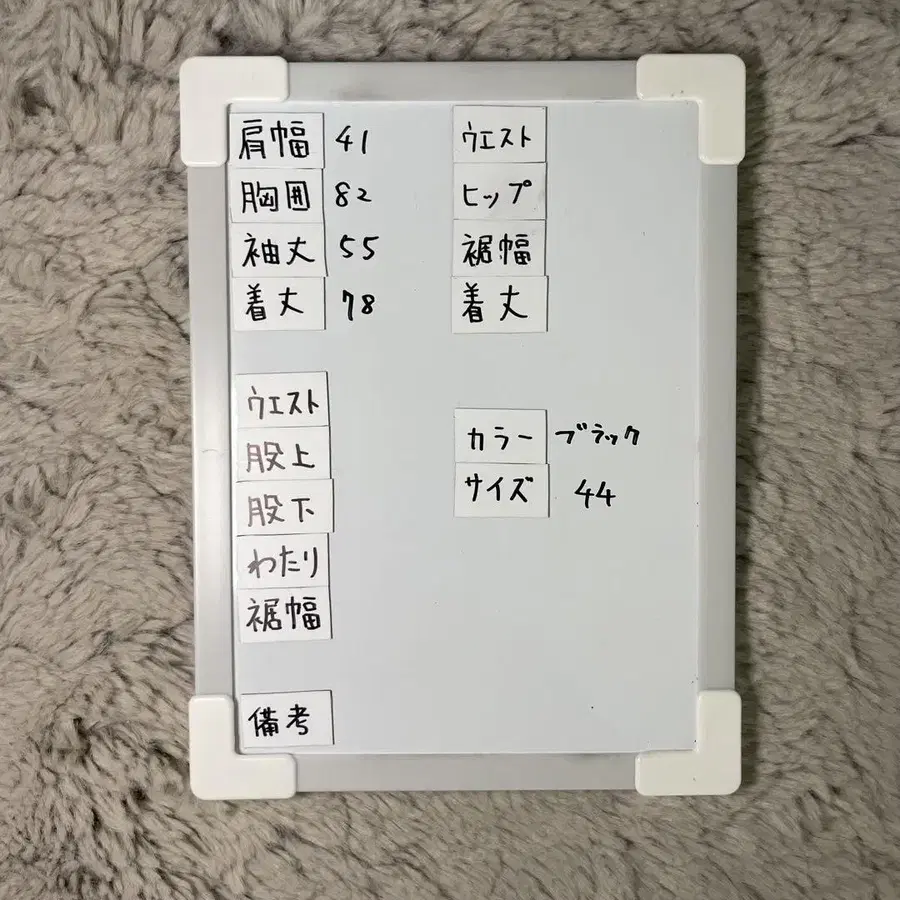 肩幅 41
胸囲 82
袖丈 55
着丈 78
ウエスト
股上
股下
わたり
裾幅
備考
ウエスト
ヒップ
裾幅
着丈
カラー ブラック
サイズ 44